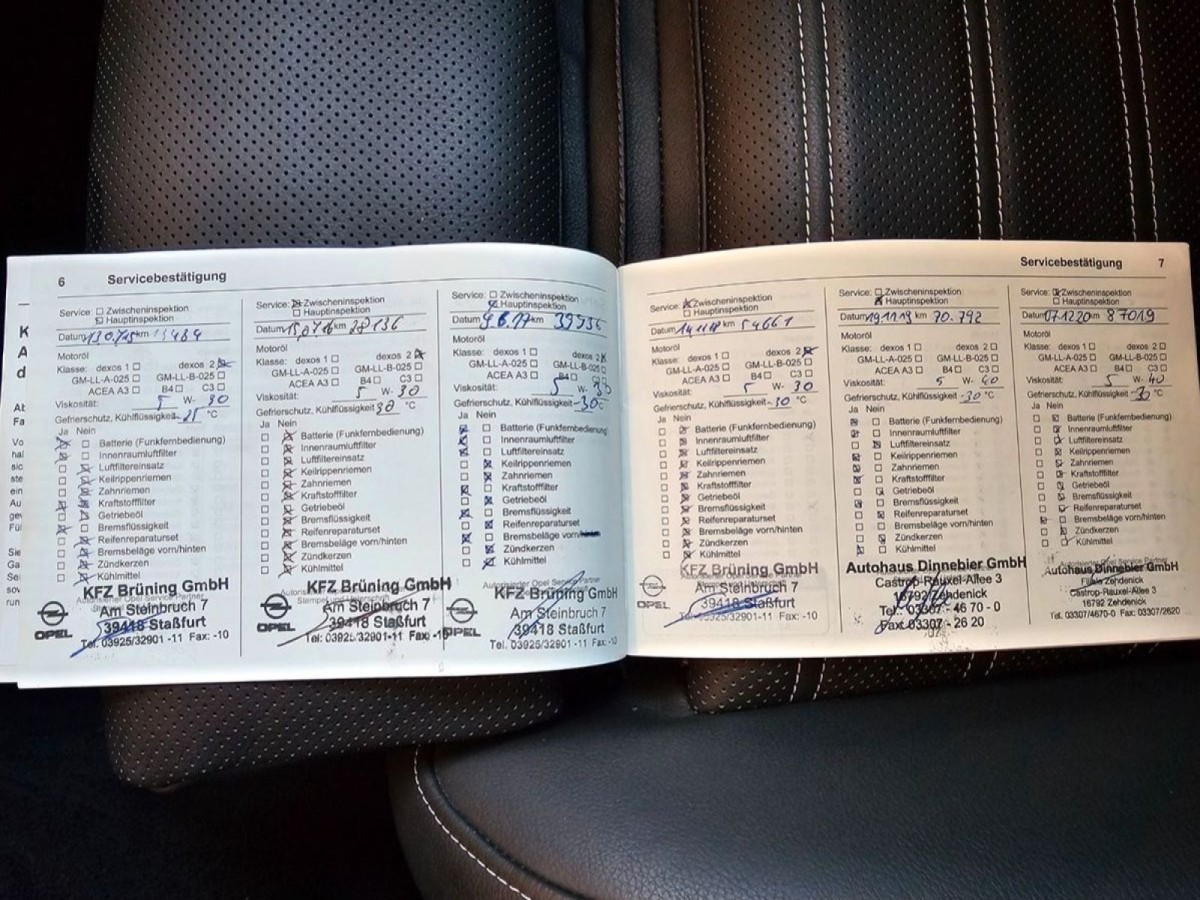 6 Servicebestätigung
Service: Zwischeninspektion
Hauptinspektion
Datum km
Motoröl
Klasse: dexos 1 dexos 2
GM-LL-A-025 GM-LL-B-025
ACEA A3 B4 C3
Viskosität: 5 W- 30
Gefrierschutz, Kühlflüssigkeit °C
Ja Nein
Batterie (Funkfernbedienung)
Innenraumluftfilter
Luftfiltereinsatz
Keilrippenriemen
Zahnriemen
Kraftstofffilter
Getriebeöl
Bremsflüssigkeit
Reifenreparaturset
Bremsbeläge vorn/hinten
Zündkerzen
Kühlmittel
KFZ Brüning GmbH
Am Steinbruch 7
39418 Staßfurt
Tel. 03925/32901 -11 Fax: -10
OPEL
Service: Zwischeninspektion
Hauptinspektion
Datum km 28136
Motoröl
Klasse: dexos 1 dexos 2
GM-LL-A-025 GM-LL-B-025
ACEA A3 B4 C3
Viskosität: 5 W- 30
Gefrierschutz, Kühlflüssigkeit 30 °C
Ja Nein
Batterie (Funkfernbedienung)
Innenraumluftfilter
Luftfiltereinsatz
Keilrippenriemen
Zahnriemen
Kraftstofffilter
Getriebeöl
Bremsflüssigkeit
Reifenreparaturset
Bremsbeläge vorn/hinten
Zündkerzen
Kühlmittel
KFZ Brüning GmbH
Am Steinbruch 7
39418 Staßfurt
Tel: 03925/32901-11 Fax: -10
OPEL
Service: Zwischeninspektion
Hauptinspektion
Datum 9.6.17 km
Motoröl
Klasse: dexos 1 dexos 2
GM-LL-A-025 GM-LL-B-025
ACEA A3 B4 C3
Viskosität: 5 W- 30
Gefrierschutz, Kühlflüssigkeit -30 °C
Ja Nein
Batterie (Funkfernbedienung)
Innenraumluftfilter
Luftfiltereinsatz
Keilrippenriemen
Zahnriemen
Kraftstofffilter
Getriebeöl
Bremsflüssigkeit
Reifenreparaturset
Bremsbeläge vorn/hinten
Zündkerzen
Kühlmittel
KFZ Brüning GmbH
Am Steinbruch 7
39418 Staßfurt
Tel: 03925/32901 -11 Fax: -10
OPEL
Servicebestätigung 7
Service: Zwischeninspektion
Hauptinspektion
Datum km 54661
Motoröl
Klasse: dexos 1 dexos 2
GM-LL-A-025 GM-LL-B-025
ACEA A3 B4 C3
Viskosität: 5 W- 30
Gefrierschutz, Kühlflüssigkeit -30 °C
Ja Nein
Batterie (Funkfernbedienung)
Innenraumluftfilter
Luftfiltereinsatz
Keilrippenriemen
Zahnriemen
Kraftstofffilter
Getriebeöl
Bremsflüssigkeit
Reifenreparaturset
Bremsbeläge vorn/hinten
Zündkerzen
Kühlmittel
KFZ Brüning GmbH
Am Steinbruch 7
39418 Staßfurt
Tel: 03925/32901 -11 Fax: -10
OPEL
Service: Zwischeninspektion
Hauptinspektion
Datum 19.11.19 km 70.792
Motoröl
Klasse: dexos 1 dexos 2
GM-LL-A-025 GM-LL-B-025
ACEA A3 B4 C3
Viskosität: 5 W- 40
Gefrierschutz, Kühlflüssigkeit -30 °C
Ja Nein
Batterie (Funkfernbedienung)
Innenraumluftfilter
Luftfiltereinsatz
Keilrippenriemen
Zahnriemen
Kraftstofffilter
Getriebeöl
Bremsflüssigkeit
Reifenreparaturset
Bremsbeläge vorn/hinten
Zündkerzen
Kühlmittel
Autohaus Dinnebier GmbH
Castrop-Rauxel-Allee 3
16792 Zehdenick
Tel.: 03307 - 46 70 - 0
Fax: 03307 - 26 20
Service: Zwischeninspektion
Hauptinspektion
Datum 07.12.20 km 87019
Motoröl
Klasse: dexos 1 dexos 2
GM-LL-A-025 GM-LL-B-025
ACEA A3 B4 C3
Viskosität: 5 W- 40
Gefrierschutz, Kühlflüssigkeit -30 °C
Ja Nein
Batterie (Funkfernbedienung)
Innenraumluftfilter
Luftfiltereinsatz
Keilrippenriemen
Zahnriemen
Kraftstofffilter
Getriebeöl
Bremsflüssigkeit
Reifenreparaturset
Bremsbeläge vorn/hinten
Zündkerzen
Kühlmittel
Autohaus Dinnebier GmbH
Filiale Zehdenick
Castrop-Rauxel-Allee 3
16792 Zehdenick
Tel. 03307/4670-0 Fax: 03307/2620